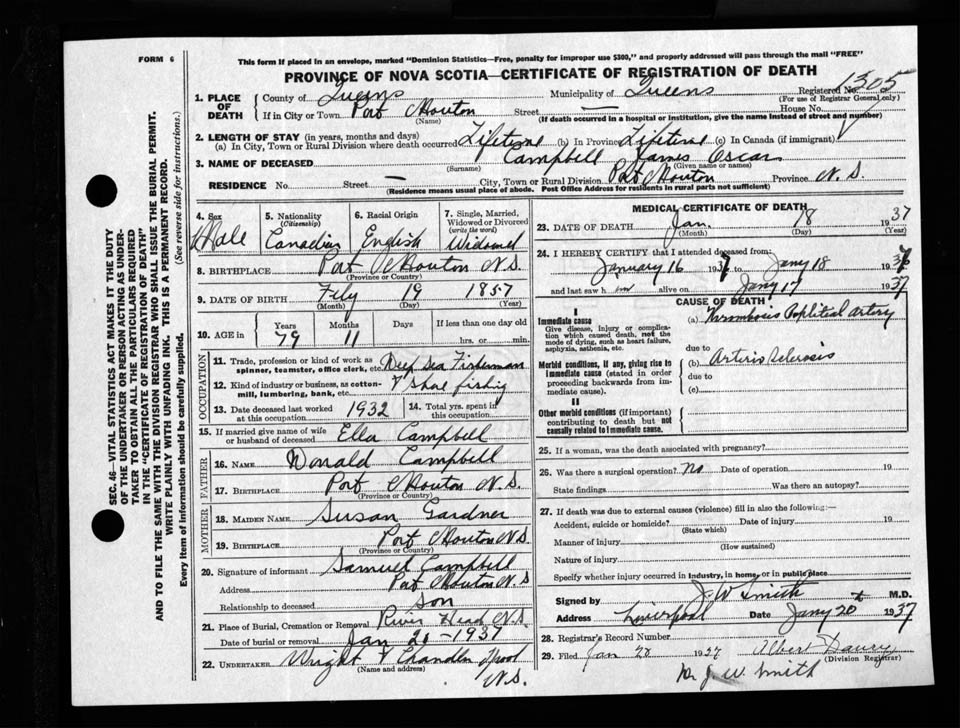 FORM 6
This form if placed in an envelope, marked "Dominion Statistics—Free, penalty for improper use $300," and properly addressed will pass through the mail "FREE"
PROVINCE OF NOVA SCOTIA—CERTIFICATE OF REGISTRATION OF DEATH
Registered No. 1305
(For use of Registrar General only)
1. PLACE OF DEATH
County of Queens Municipality of Queens
If in City or Town Port Mouton Street — House No.
(Name) (If death occurred in a hospital or institution, give the name instead of street and number)
2. LENGTH OF STAY (in years, months and days)
(a) In City, Town or Rural Division where death occurred Lifetime (b) In Province Lifetime (c) In Canada (if immigrant)
3. NAME OF DECEASED Campbell James Oscar
(Surname) (Given name or names)
RESIDENCE No. Street — City, Town or Rural Division Port Mouton Province N.S.
(Residence means usual place of abode. Post Office Address for residents in rural parts not sufficient)
4. Sex Male
5. Nationality (Citizenship) Canadian
6. Racial Origin English
7. Single, Married, Widowed or Divorced (write the word) Widowed
8. BIRTHPLACE Port Mouton N.S.
(Province or Country)
9. DATE OF BIRTH Feby 19 1857
(Month) (Day) (Year)
10. AGE in Years Months Days If less than one day old
79 11 hrs. or min.
OCCUPATION
11. Trade, profession or kind of work as spinner, teamster, office clerk, etc. Deep Sea Fisherman
12. Kind of industry or business, as cotton-mill, lumbering, bank, etc. & Shore fishing
13. Date deceased last worked at this occupation 1932
14. Total yrs. spent in this occupation
15. If married give name of wife or husband of deceased Ella Campbell
FATHER
16. NAME Donald Campbell
17. BIRTHPLACE Port Mouton N.S.
(Province or Country)
MOTHER
18. MAIDEN NAME Susan Gardner
19. BIRTHPLACE Port Mouton N.S.
(Province or Country)
20. Signature of informant Samuel Campbell
Address Port Mouton N.S
Relationship to deceased Son
21. Place of Burial, Cremation or Removal River Head N.S.
Date of burial or removal Jan 20 - 1937
22. UNDERTAKER Wright & Chandler Lpool
(Name and address) N.S.
MEDICAL CERTIFICATE OF DEATH
23. DATE OF DEATH Jan. 18 1937
(Month) (Day) (Year)
24. I HEREBY CERTIFY that I attended deceased from:
January 16 1937 to Jany 18 1937
and last saw h im alive on Jany 17 1937
CAUSE OF DEATH
I
Immediate cause
Give disease, injury or complication which caused death, not the mode of dying, such as heart failure, asphyxia, asthenia, etc.
(a) Thrombosis Popliteal artery
due to
Morbid conditions, if any, giving rise to immediate cause (stated in order proceeding backwards from immediate cause).
(b) Arterio Sclerosis
due to
(c)
II
Other morbid conditions (if important) contributing to death but not causally related to immediate cause.
25. If a woman, was the death associated with pregnancy?
26. Was there a surgical operation? No Date of operation 19
State findings Was there an autopsy?
27. If death was due to external causes (violence) fill in also the following:—
Accident, suicide or homicide? Date of injury 19
(State which)
Manner of injury
(How sustained)
Nature of injury
Specify whether injury occurred in industry, in home, or in public place
Signed by J. W Smith M.D.
Address Liverpool Date Jany 20th 1937
28. Registrar's Record Number
29. Filed Jan 20 1937 Albert
(Division Registrar)
Dr J. W. Smith
SEC. 46—VITAL STATISTICS ACT MAKES IT THE DUTY
OF THE UNDERTAKER OR PERSON ACTING AS UNDERTAKER TO OBTAIN ALL THE PARTICULARS REQUIRED
IN THE "CERTIFICATE OF REGISTRATION OF DEATH"
AND TO FILE THE SAME WITH THE DIVISION REGISTRAR WHO SHALL ISSUE THE BURIAL PERMIT.
WRITE PLAINLY WITH UNFADING INK. THIS IS A PERMANENT RECORD.
Every item of information should be carefully supplied. (See reverse side for instructions.)